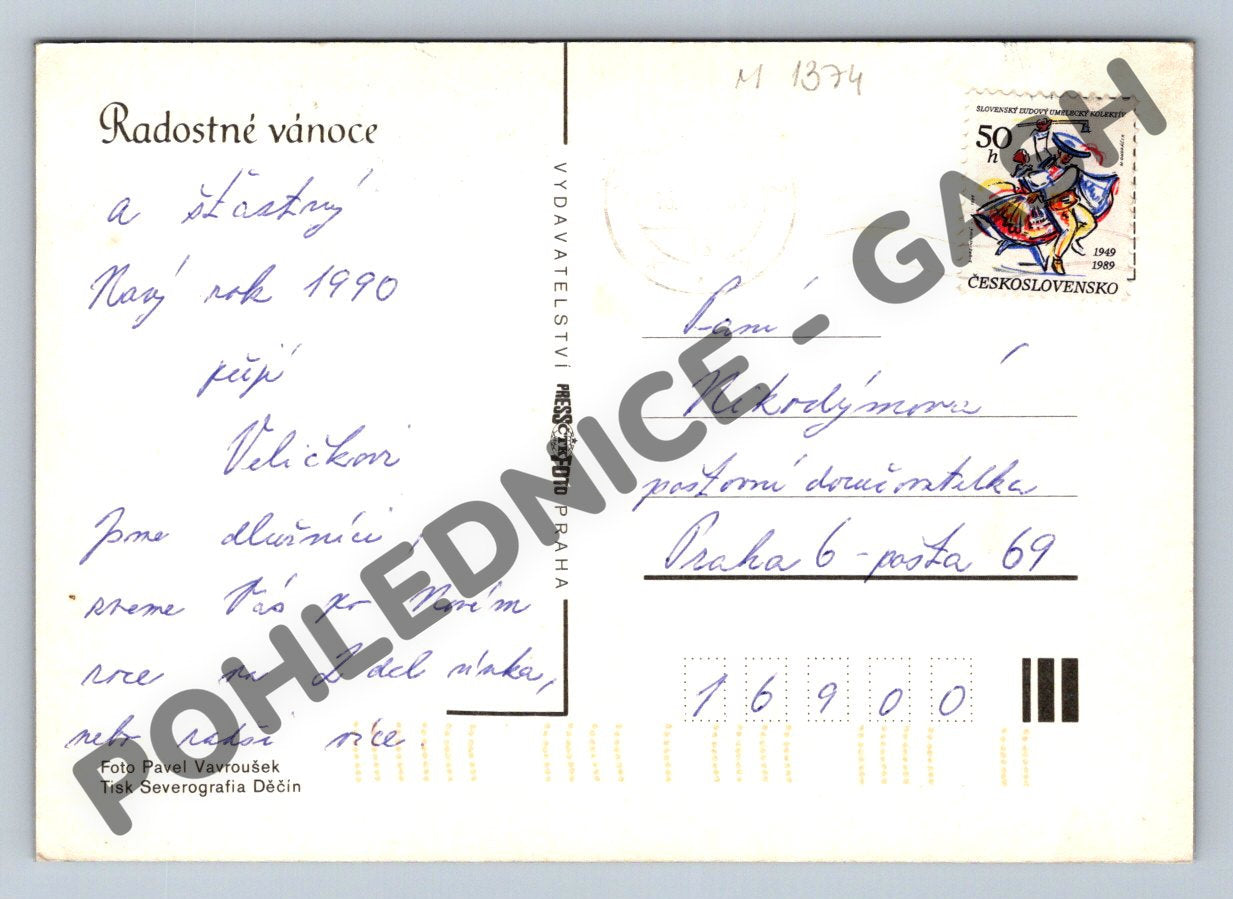 M 1374
Radostné vánoce
a šťastný
Nový rok 1990
přejí
Veličkovi
Jsme dlužníci,
zveme Vás po Novém
roce na 2 dcl vínka,
nebo radši více.
Foto Pavel Vavroušek
Tisk Severografia Děčín
VYDAVATELSTVÍ
PRESSFOTO
ČTK
PRAHA
SLOVENSKÝ ĽUDOVÝ UMELECKÝ KOLEKTÍV
50
h
1949
1989
ČESKOSLOVENSKO
Paní
Nikodýmová
poštovní doručovatelka
Praha 6 - pošta 69
16900
POHLEDNICE - GACH